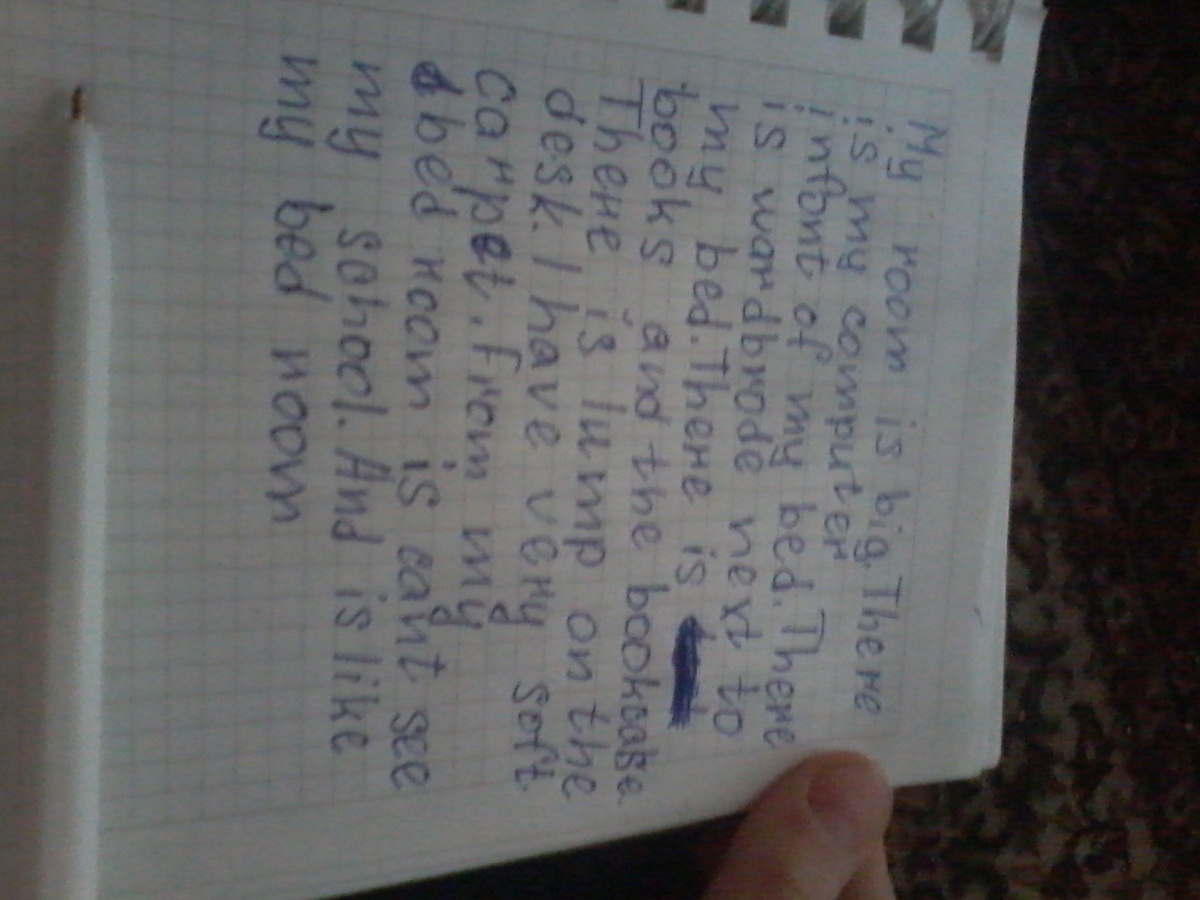 My room is big. There
is my computer
infont of my bed. There
is wardbrode next to
my bed. There is
books and the bookcase
There is lump on the
desk. I have very soft
carpet. from my
bed room is cant see
my school. And is like
my bed room